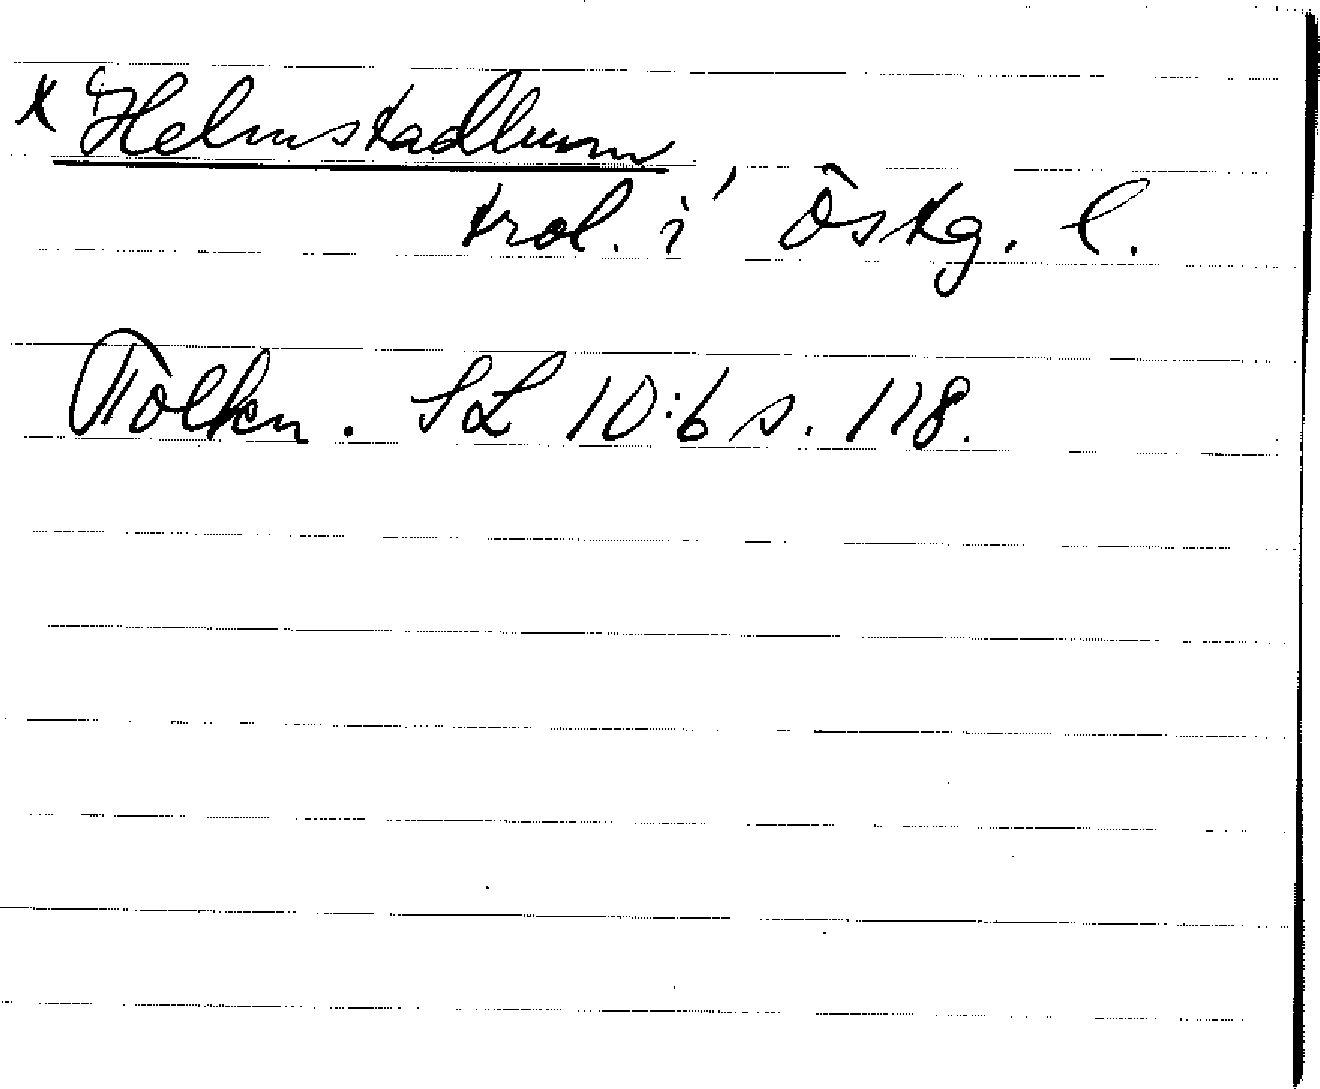 x Helmstadhum
trol. i Östg. l.
Tolkn. SL 10:6 s. 118.